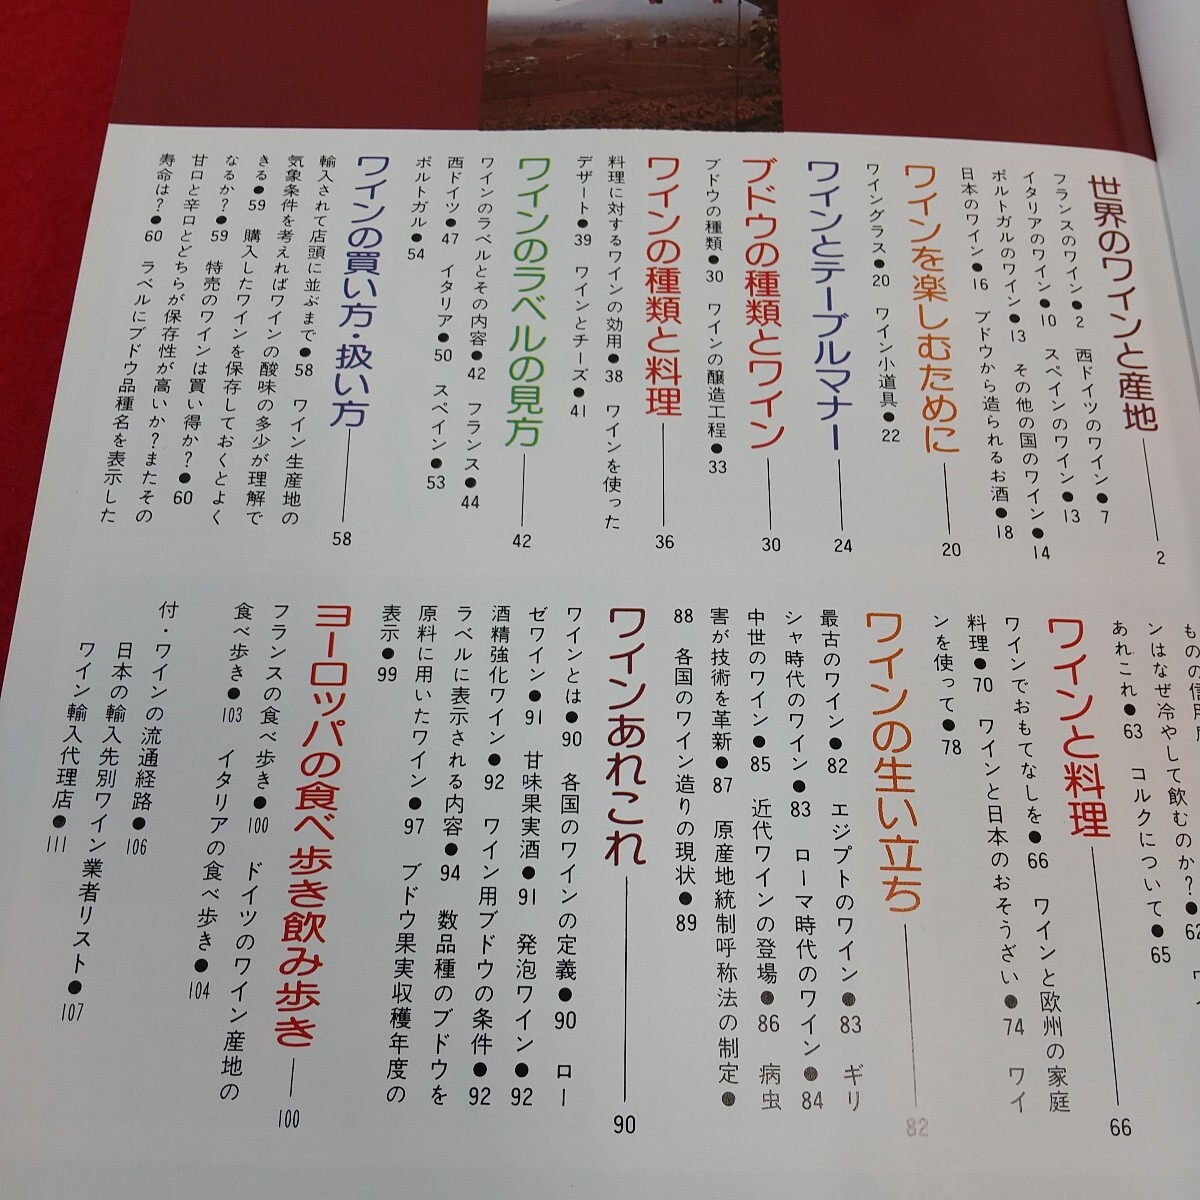 世界のワインと産地──2
フランスのワイン●2　西ドイツのワイン●7
イタリアのワイン●10　スペインのワイン●13
ポルトガルのワイン●13　その他の国のワイン●14
日本のワイン●16　ブドウから造られるお酒●18
ワインを楽しむために──20
ワイングラス●20　ワイン小道具●22
ワインとテーブルマナー──24
ブドウの種類とワイン──30
ブドウの種類●30　ワインの醸造工程●33
ワインの種類と料理──36
料理に対するワインの効用●38　ワインを使った
デザート●39　ワインとチーズ●41
ワインのラベルの見方──42
ワインのラベルとその内容●42　フランス●44
西ドイツ●47　イタリア●50　スペイン●53
ポルトガル●54
ワインの買い方・扱い方──58
輸入されて店頭に並ぶまで●58　ワイン生産地の
気象条件を考えればワインの酸味の多少が理解で
きる●59　購入したワインを保存しておくとよく
なるか?●59　特売のワインは買い得か?●60
甘口と辛口とどちらが保存性が高いか?またその
寿命は?●60　ラベルにブドウ品種名を表示した
ンはなぜ冷やして飲むのか?●62
あれこれ●63　コルクについて●65
ワインと料理──66
ワインでおもてなしを●66　ワインと欧州の家庭
料理●70　ワインと日本のおそうざい●74　ワイ
ンを使って●78
ワインの生い立ち──82
最古のワイン●82　エジプトのワイン●83　ギリ
シャ時代のワイン●83　ローマ時代のワイン●84
中世のワイン●85　近代ワインの登場●86　病虫
害が技術を革新●87　原産地統制呼称法の制定●
88　各国のワイン造りの現状●89
ワインあれこれ──90
ワインとは●90　各国のワインの定義●90　ロー
ゼワイン●91　甘味果実酒●91　発泡ワイン●92
酒精強化ワイン●92　ワイン用ブドウの条件●92
ラベルに表示される内容●94　数品種のブドウを
原料に用いたワイン●97　ブドウ果実収穫年度の
表示●99
ヨーロッパの食べ歩き飲み歩き──100
フランスの食べ歩き●100　ドイツのワイン産地の
食べ歩き●103　イタリアの食べ歩き●104
付・ワインの流通経路●106
日本の輸入先別ワイン業者リスト●107
ワイン輸入代理店●111